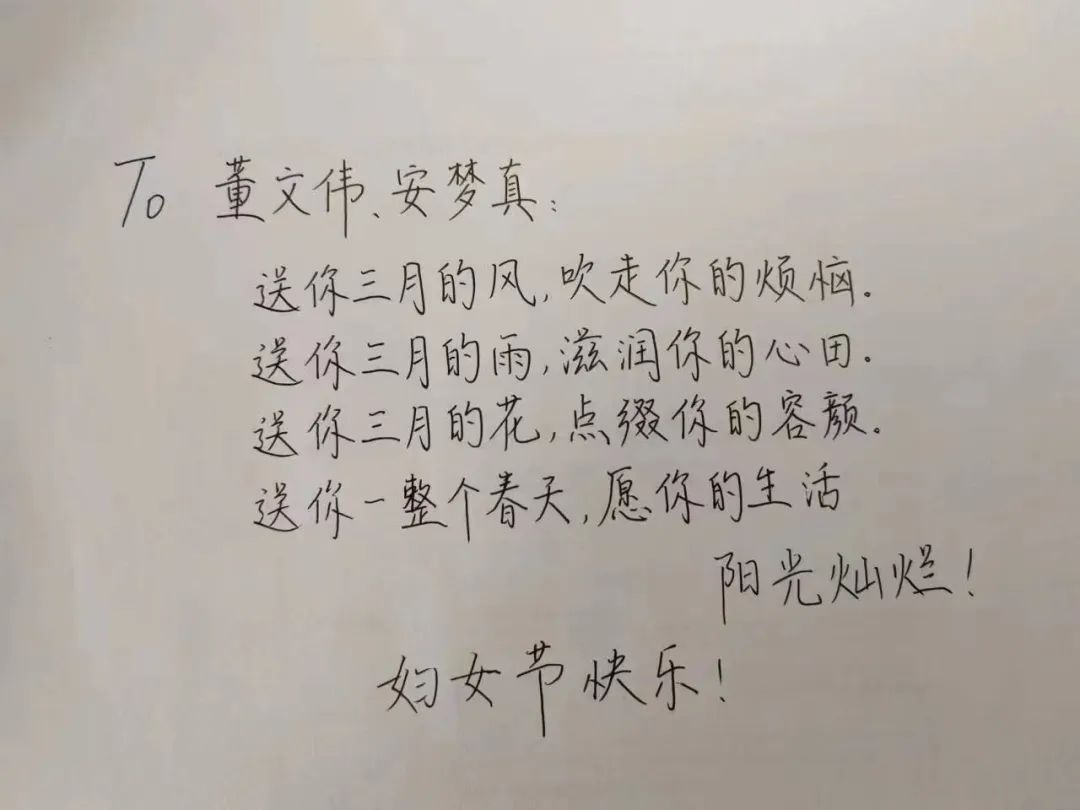 To 董文伟、安梦真:
送你三月的风,吹走你的烦恼.
送你三月的雨,滋润你的心田.
送你三月的花,点缀你的容颜.
送你一整个春天,愿你的生活
阳光灿烂!
妇女节快乐!